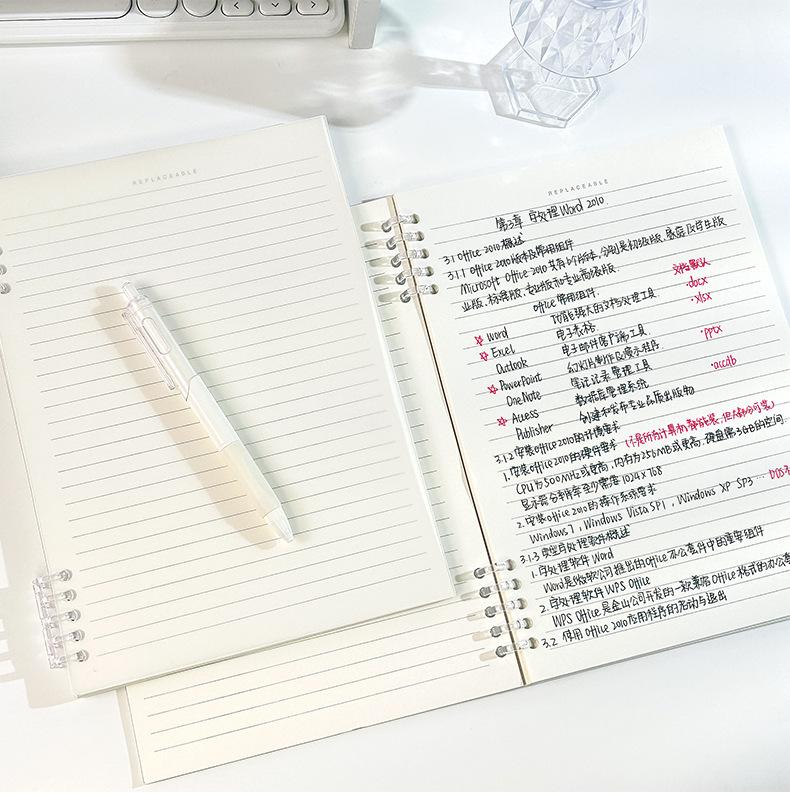 REPLACEABLE
REPLACEABLE
第3章 字处理Word 2010
3.1 Office 2010概述
3.1.1 Office 2010版本及常用组件
Microsoft Office 2010共有6个版本,分别是初级版、家庭及学生版
业版、标准版、专业版和专业高级版.
Office常用组件. 文档默认
☆ Word 功能强大的文档处理工具 .docx
☆ Excel 电子表格 .xlsx
Outlook 电子邮件客户端工具
☆ PowerPoint 幻灯片制作及演示程序 .pptx
OneNote 笔记记录管理工具
☆ Access 数据库管理系统 .accdb
Publisher 创建和发布专业品质出版物
3.1.2 安装Office 2010的环境要求 (不是所有计算机都能装,但大部分可装)
1. 安装Office 2010的硬件要求
CPU为500MHz或更高,内存为256MB或更高,硬盘需3GB的空间.
显示器分辨率至少需要1024×768
2. 安装Office 2010的操作系统要求
Windows 7, Windows Vista SP1, Windows XP SP3 … DOS
3.1.3 典型字处理软件概述
1. 字处理软件Word
Word是微软公司推出的Office办公套件中的重要组件
2. 字处理软件WPS Office
WPS Office是金山公司开发的一款兼容Office格式的办公套
3.2 使用Office 2010应用程序的启动与退出